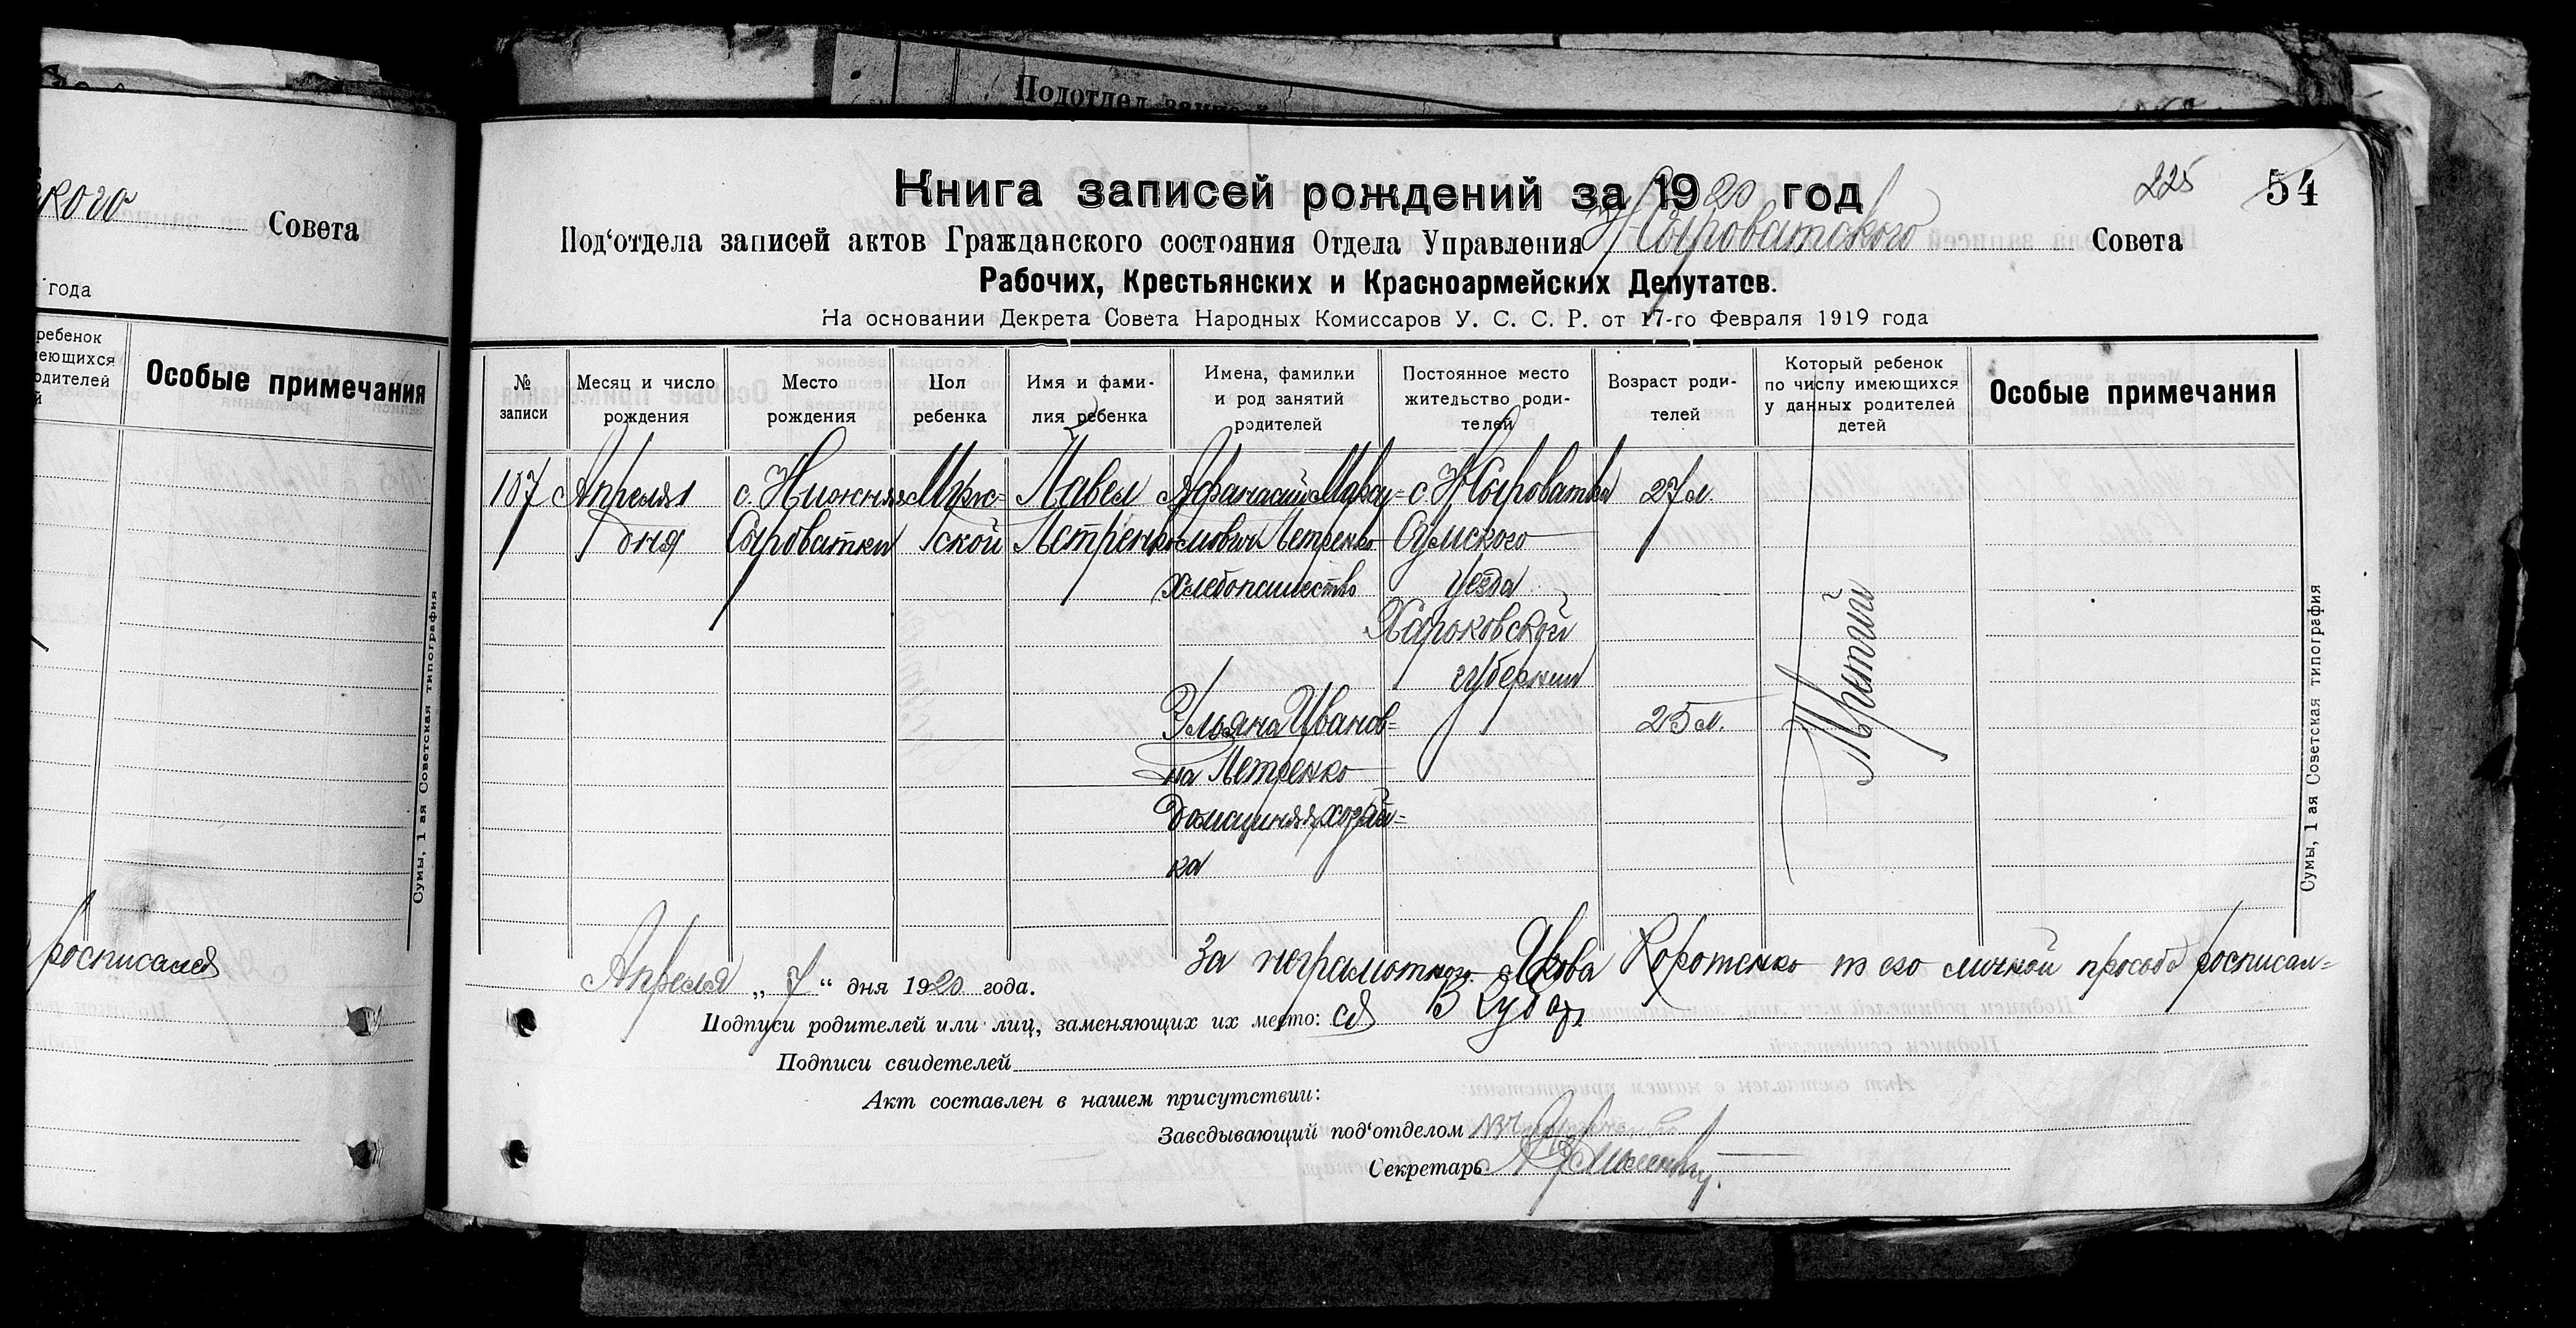 Подотдел
кого Совета
года
ребенок
Особые примечания
росписался
Сумы, 1 ая Советская типография
225 54
Книга записей рождений за 1920 год
Под‘отдела записей актов Гражданского состояния Отдела Управления Н Сыроватского Совета
Рабочих, Крестьянских и Красноармейских Депутатов.
На основании Декрета Совета Народных Комиссаров У. С. С. Р. от 17-го Февраля 1919 года
№ записи
Месяц и число рождения
Место рождения
Пол ребенка
Имя и фами-
лия ребенка
Имена, фамилки
и род занятий
родителей
Постоянное место
жительство роди-
телей
Возраст роди-
телей
Который ребенок
по числу имеющихся
у данных родителей
детей
Особые примечания
107
Апреля 1
дня
с. Нижняя
Сыроватки
Муж-
ской
Павел
Петренко
Афанасий Макси-
мович Петренко
хлебопашество
Ульяна Иванов-
на Петренко
Домашняя хозяй-
ка
с. Н Сыроватки
Сумского
уезда
Харьковской
губернии
27 л.
25 л.
Третий
Сумы, 1 ая Советская типография
Апреля „ 7 “ дня 1920 года.
За неграмотного Якова Коротенко по его личной прособе росписал-
Подписи родителей или лиц, заменяющих их место: ся
Подписи свидетелей
Акт составлен в нашем присутствии:
Заведывающий под‘отделом
Секретарь